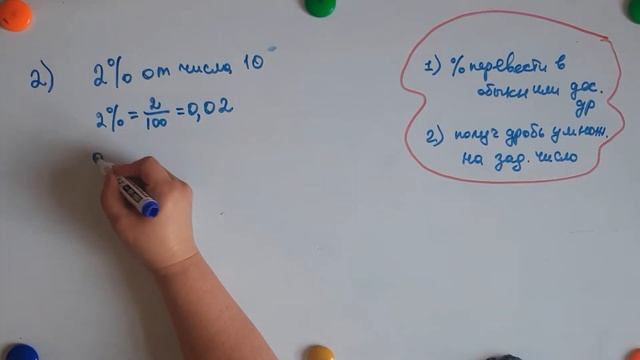 2) 2% от числа 10
2% = 2/100 = 0,02
1) % перевести в
обыкн или дес.
др
2) получ дробь умнож.
на зад. число